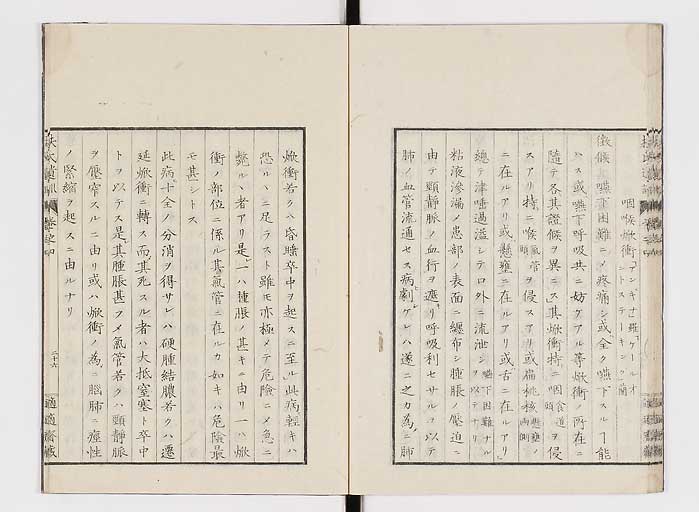 咽喉焮衝
徴候 嚥下困難ニメ疼痛シ或ハ全ク嚥下スルヿ能
ハス或ハ嚥下呼吸共ニ妨ケアル等焮衝ノ所在ニ
隨テ各其證候ヲ異ニス其焮衝特ニ咽ヲ侵
スアリ特ニ喉ヲ侵スアリ或ハ扁桃核
ニ在ルアリ或ハ懸壅ニ在ルアリ或ハ舌ニ在ルアリ
總テ津唾過溢シテ口外ニ流泄シ嚥下困難ナルヲ以テナリ
粘液滲漏メ患部ノ表面ニ纏布シ腫脹ノ壓迫ニ
由テ頸靜脈ノ血行ヲ遮リ呼吸利セサルヲ以テ
肺ノ血管流通セス病劇ケレハ遂ニ之カ為ニ肺
焮衝若クハ昏睡卒中ヲ起スニ至ル此病輕キハ
恐ルヽニ足ラスト雖モ亦極メテ危險ニメ急ニ
斃ルヽ者アリ是一ハ腫脹ノ甚キニ由リ一ハ焮
衝ノ部位ニ係ル其氣管ニ在ルカ如キハ危險最
モ甚シトス
此病十全ノ分消ヲ得サレハ硬腫結膿若クハ遷
延焮衝ニ轉ス而其死スル者ハ大抵窒塞ト卒中
トヲ以テス是其腫脹甚フメ氣管若クハ頸靜脈
ヲ壓窄スルニ由リ或ハ焮衝ノ為ニ腦肺ニ痙性
ノ緊縮ヲ起スニ由ルナリ
二十六
適適齋藏